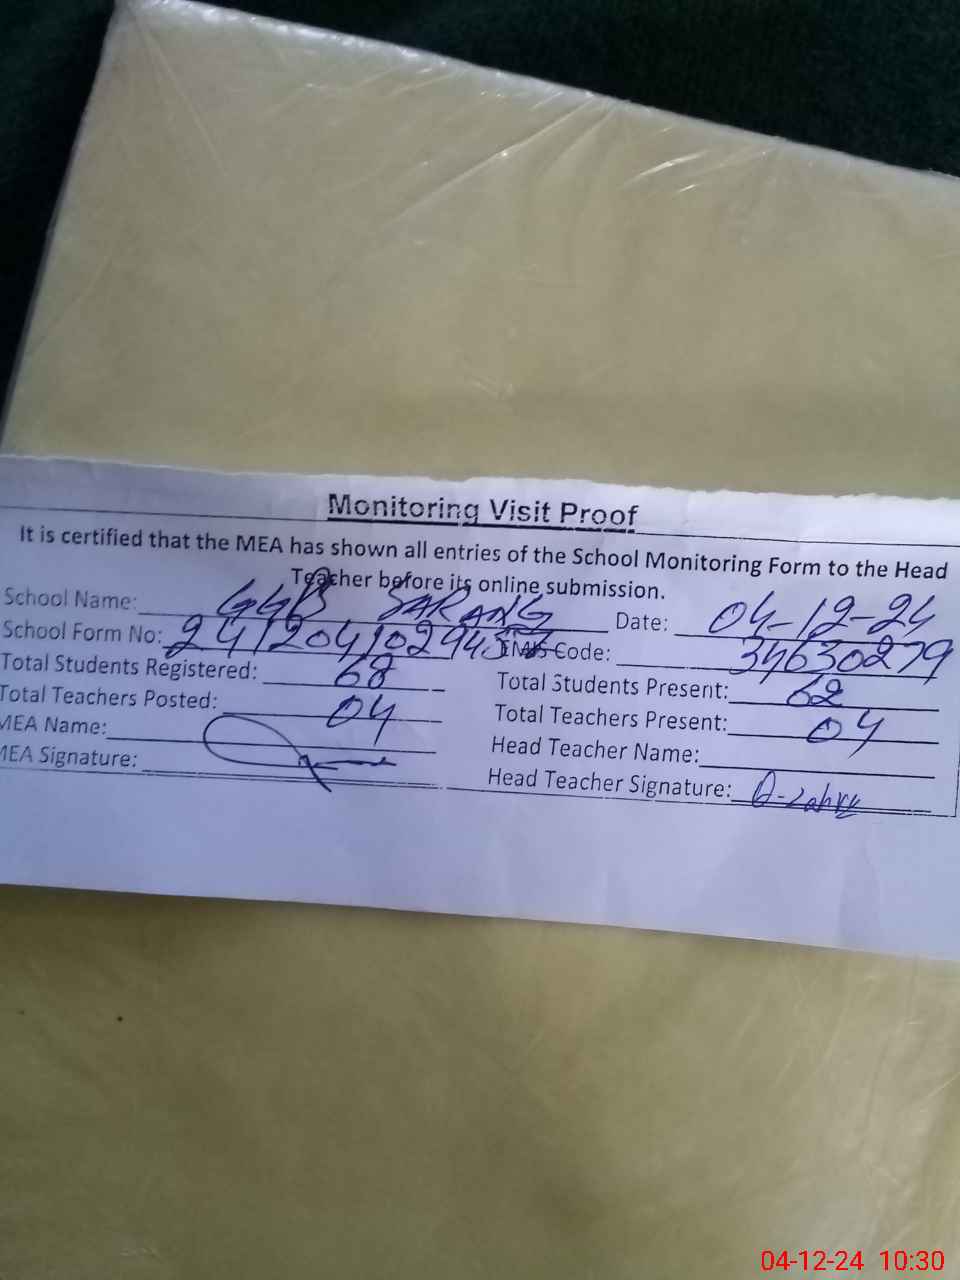 Monitoring Visit Proof
It is certified that the MEA has shown all entries of the School Monitoring Form to the Head
Teacher before its online submission.
School Name: SARANG Date: 04-12-24
School Form No: EMIS Code: 34630279
Total Students Registered: 68 Total Students Present: 62
Total Teachers Posted: 04 Total Teachers Present: 04
MEA Name: Head Teacher Name:
MEA Signature: Head Teacher Signature:
04-12-24 10:30